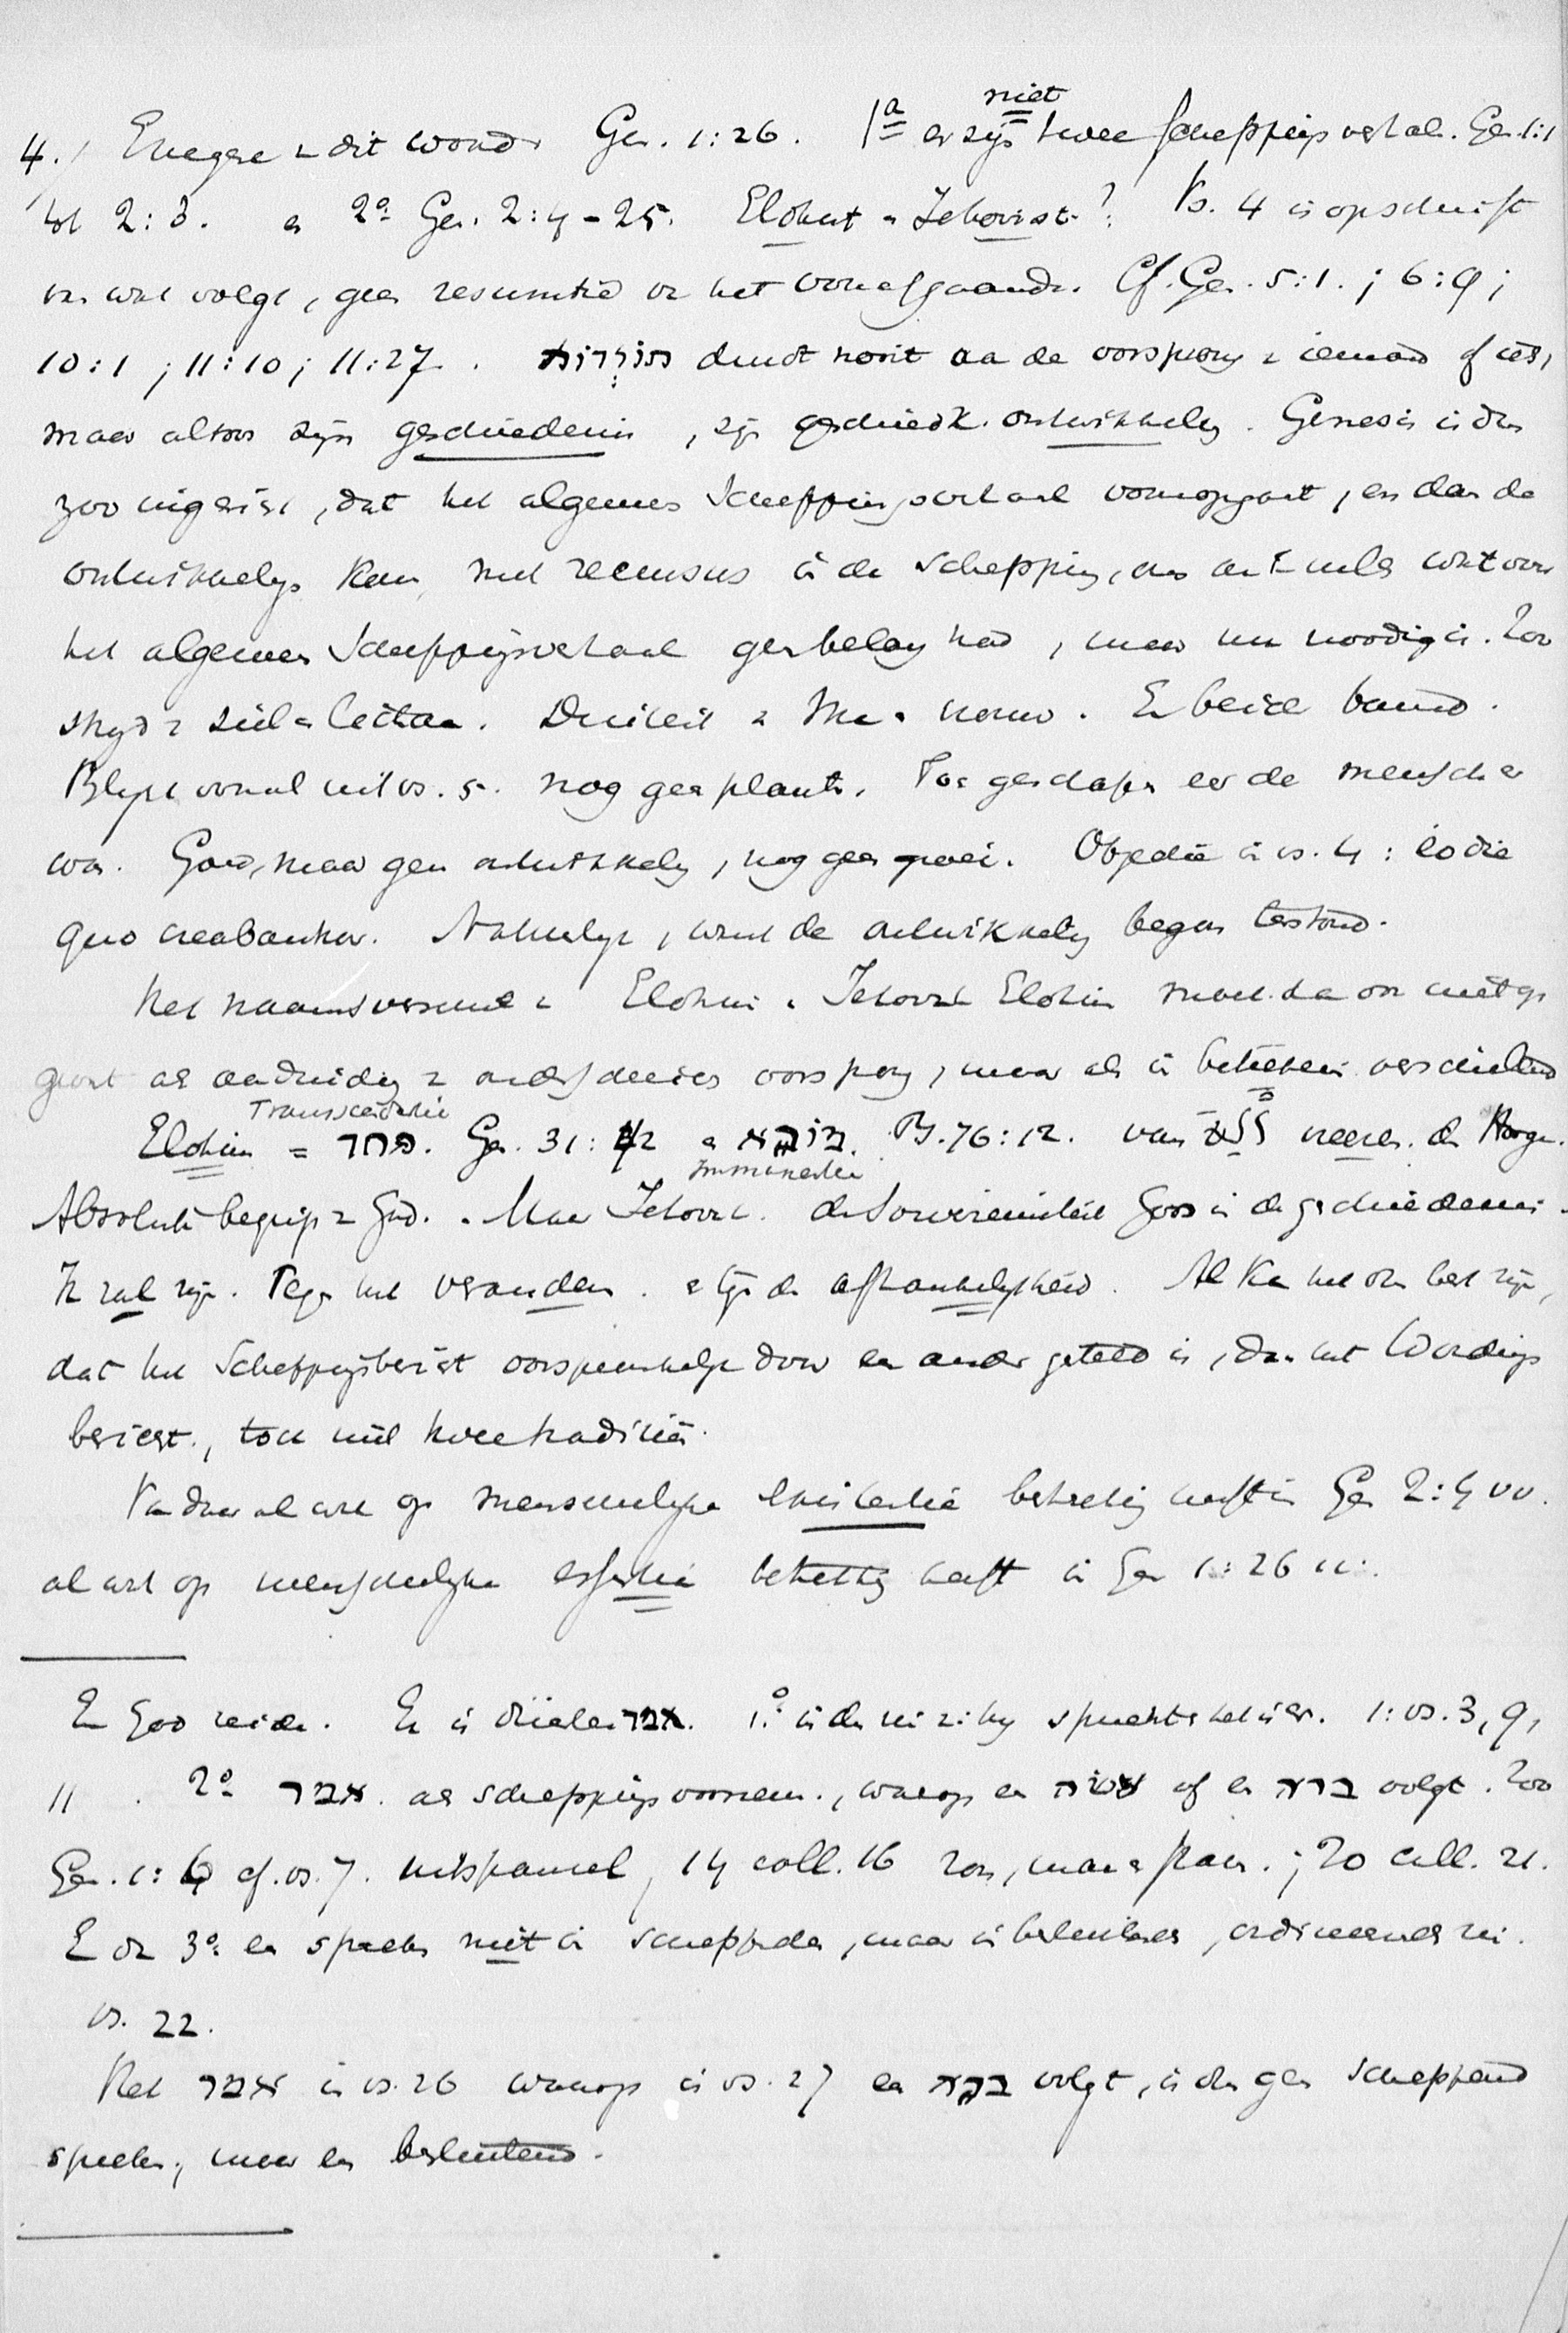 4./ Exegese v dit woord. Gen. 1:26. 1a er zijn niet twee scheppingsverhalen. Gen. 1:1
tot 2:3. en 2o Gen. 2:4-25. Elohist en Jehovist? Vs. 4 is opschrift
van wat volgt, geen resumtie v. het voorafgaande. Cf. Gen. 5:1.; 6:9;
10:1; 11:10; 11:27. תולדות duidt nooit aan de oorsprong v iemand of iets,
maar altoos zijn geschiedenis, zijn geschiedk. ontwikkeling. Genesis is dus
zoo ingericht, dat het algemeen Scheppingsverhaal vooropgaat, en dan de
ontwikkeling komt, met recursus in de Schepping, van wat voor
het algemeen Scheppingsverhaal geen belang had, maar nu noodig is. Zoo
ziel en lichaam. Dualiteit v Man en vrouw. En beide
Blijkt vooral uit vs. 5. nog geen plant. Toch geschapen eer de mensch er
was. Goed, maar geen ontwikkeling, nog geen groei. Objectie in vs. 4: eo die
quo creabantur. Natuurlijk, want de ontwikkeling begon terstond.
Het naamsverschil v Elohim en Jehovah Elohim moet dan ook niet op-
gevat als aanduiding v anderen oorsprong, maar als in beteekenis verschillend
Transscendentie
Elohim = פחד. Gen. 31:42 en מורא. Ps. 76:12. van vreezen. de Hooge.
Immanentie
Absolute begrip v God. Maar Jehovah. de Souvereiniteit Gods in de geschiedenis.
Ik zal zijn. Tegen het veranderen. en tegen de afhankelijkheid. Al kan het dus best zijn,
dat het Scheppingsbericht oorspronkelijk door een ander geteld is, dan het Wordings
bericht, toch niet twee traditiën.
Vandaar al wat op menschelijke existentie betrekking heeft in Gen 2:4 vv.
al wat op menschelijke essentie betrekking heeft in Gen 1:26
En God zeide. Er is drieërlei אמר. 1o in den zin v: hij spreekt en het is er. 1: vs. 3, 9,
11. 2o אמר. als scheppingsvoornemen, waarop een עשה of een ברא volgt. Zoo
Gen. 1:6 cf. vs. 7. uitspansel, 14 coll. 16 zon, maan en sterren.; 20 coll. 21.
En dan 3o een spreken niet in scheppenden, maar in besluitenden, ordineerenden zin.
vs. 22.
Het אמר in vs. 26 waarop in vs. 27 een ברא volgt, is dus geen scheppend
spreken, maar een besluitend.